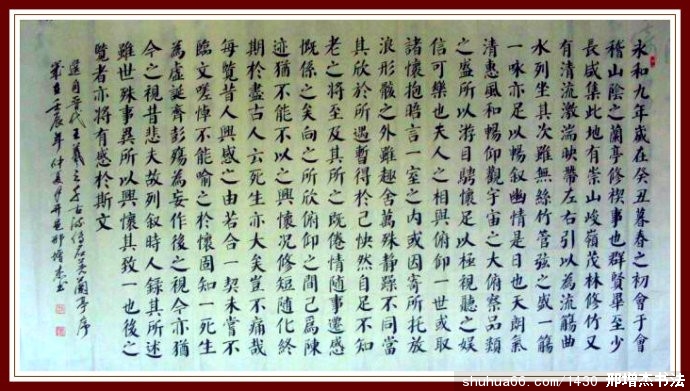 永和九年歲在癸丑暮春之初會于會
稽山陰之蘭亭修禊事也群賢畢至少
長咸集此地有崇山峻嶺茂林修竹又
有清流激湍映帶左右引以為流觴曲
水列坐其次雖無絲竹管弦之盛一觴
一咏亦足以暢叙幽情是日也天朗氣
清惠風和暢仰觀宇宙之大俯察品類
之盛所以游目騁懷足以極視聽之娛
信可樂也夫人之相與俯仰一世或取
諸懷抱晤言一室之内或因寄所托放
浪形骸之外雖趣舍萬殊靜躁不同當
其欣於所遇暫得於己怏然自足不知
老之將至及其所之既倦情隨事遷感
慨係之矣向之所欣俯仰之間已為陳
迹猶不能不以之興懷况修短隨化終
期於盡古人云死生亦大矣豈不痛哉
每覽昔人興感之由若合一契未嘗不
臨文嗟悼不能喻之於懷固知一死生
為虛誕齊彭殤為妄作後之視今亦猶
今之視昔悲夫故列叙時人録其所述
雖世殊事異所以興懷其致一也後之
覽者亦將有感於斯文
選自晉代王羲之千古流傳名著蘭亭序
歲在壬辰年仲夏月 邢增杰書
shuhua66.com/1430 邢增杰书法